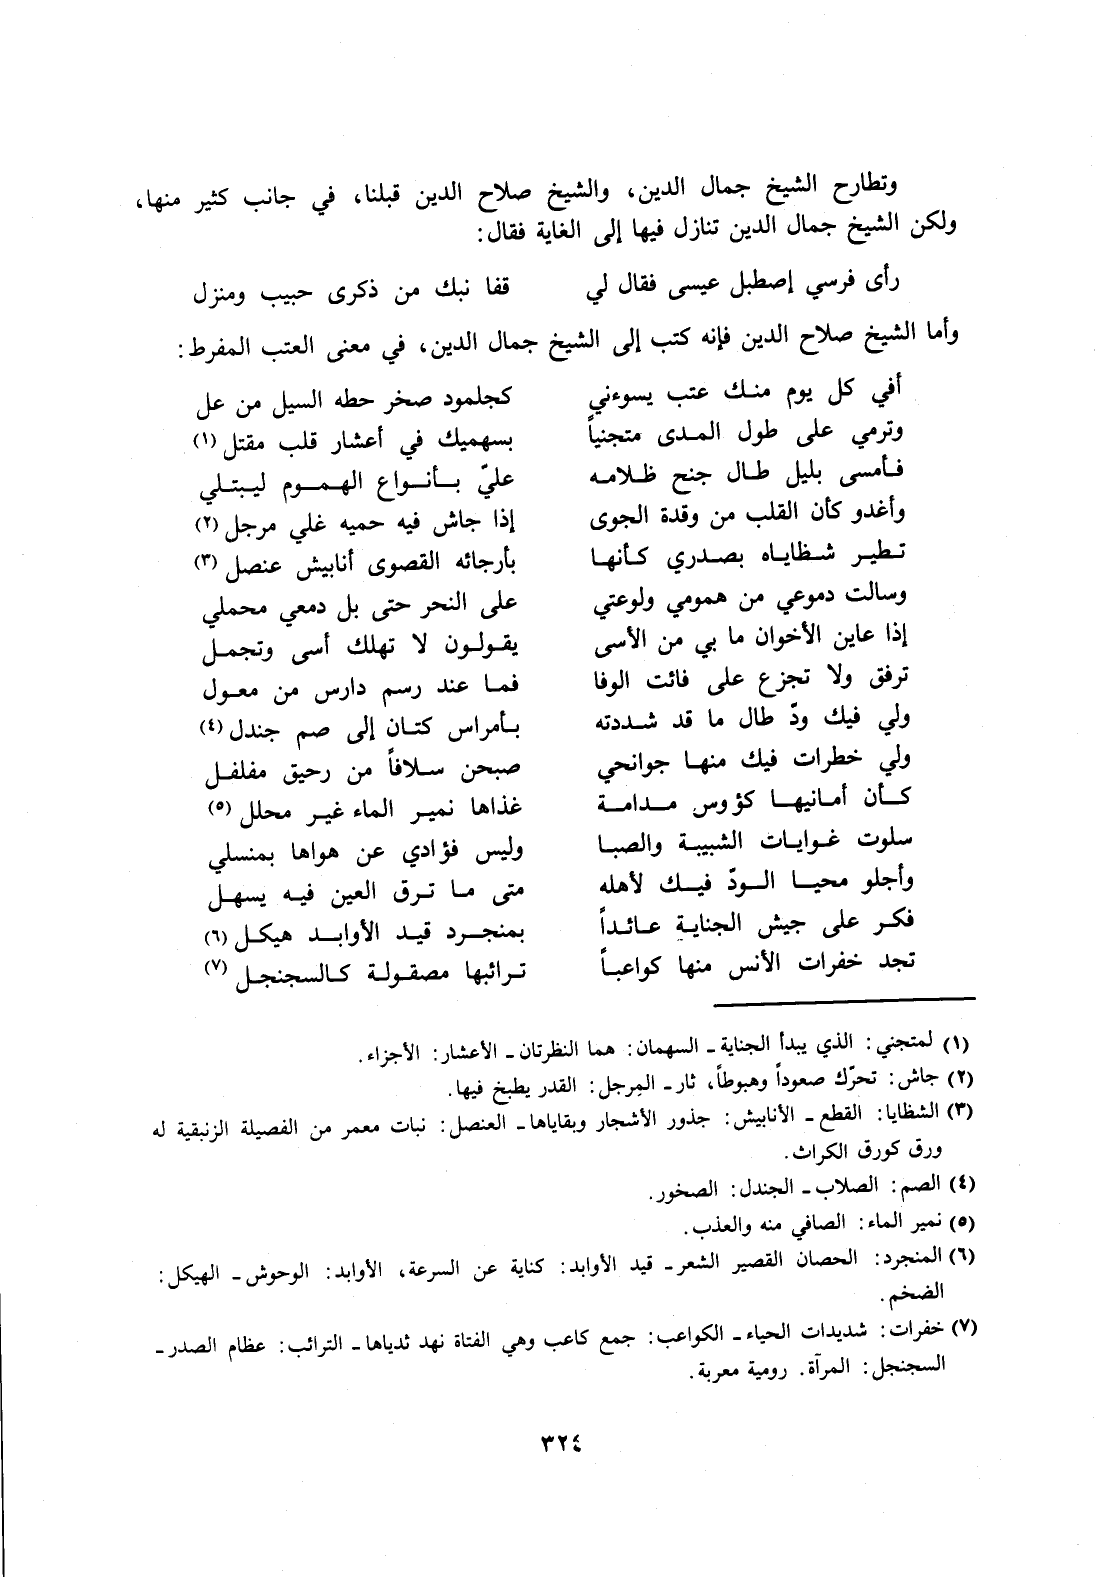 وتطارح الشيخ جمال الدين، والشيخ صلاح الدين قبلنا، في جانب كثير منها،
ولكن الشيخ جمال الدين تنازل فيها إلى الغاية فقال:
رأى فرسي إصطبل عيسى فقال لي قفا نبك من ذكرى حبيب ومنزل
وأما الشيخ صلاح الدين فإنه كتب إلى الشيخ جمال الدين، في معنى العتب المفرط:
أفي كل يوم منك عتب يسوءني كجلمود صخر حطه السيل من عل
وترمي على طول المدى متجنياً بسهميك في أعشار قلب مقتل (١)
فأمسى بليل طال جنح ظلامه عليّ بأنواع الهموم ليبتلي
وأغدو كأن القلب من وقدة الجوى إذا جاش فيه حميه غلي مرجل (٢)
تطير شظاياه بصدري كأنها بأرجائه القصوى أنابيش عنصل (٣)
وسالت دموعي من همومي ولوعتي على النحر حتى بل دمعي محملي
إذا عاين الأخوان ما بي من الأسى يقولون لا تهلك أسى وتجمل
ترفق ولا تجزع على فائت الوفا فما عند رسم دارس من معول
ولي فيك ودّ طال ما قد شددته بأمراس كتان إلى صم جندل (٤)
ولي خطرات فيك منها جوانحي صبحن سلافاً من رحيق مفلفل
كأن أمانيها كؤوس مدامة غذاها نمير الماء غير محلل (٥)
سلوت غوايات الشبيبة والصبا وليس فؤادي عن هواها بمنسلي
وأجلو محيا الودّ فيك لأهله متى ما ترق العين فيه يسهل
فكر على جيش الجناية عائداً بمنجرد قيد الأوابد هيكل (٦)
تجد خفرات الأنس منها كواعباً ترائبها مصقولة كالسجنجل (٧)
(١) لمتجني: الذي يبدأ الجناية ـ السهمان: هما النظرتان ـ الأعشار: الأجزاء.
(٢) جاش: تحرّك صعوداً وهبوطاً، ثار ـ المِرجل: القدر يطبخ فيها.
(٣) الشظايا: القطع ـ الأنابيش: جذور الأشجار وبقاياها ـ العنصل: نبات معمر من الفصيلة الزنبقية له
ورق كورق الكراث.
(٤) الصم: الصلاب ـ الجندل: الصخور.
(٥) نمير الماء: الصافي منه والعذب.
(٦) المنجرد: الحصان القصير الشعر ـ قيد الأوابد: كناية عن السرعة، الأوابد: الوحوش ـ الهيكل:
الضخم.
(٧) خفرات: شديدات الحياء ـ الكواعب: جمع كاعب وهي الفتاة نهد ثدياها ـ الترائب: عظام الصدر ـ
السجنجل: المرآة. رومية معربة.
٣٢٤